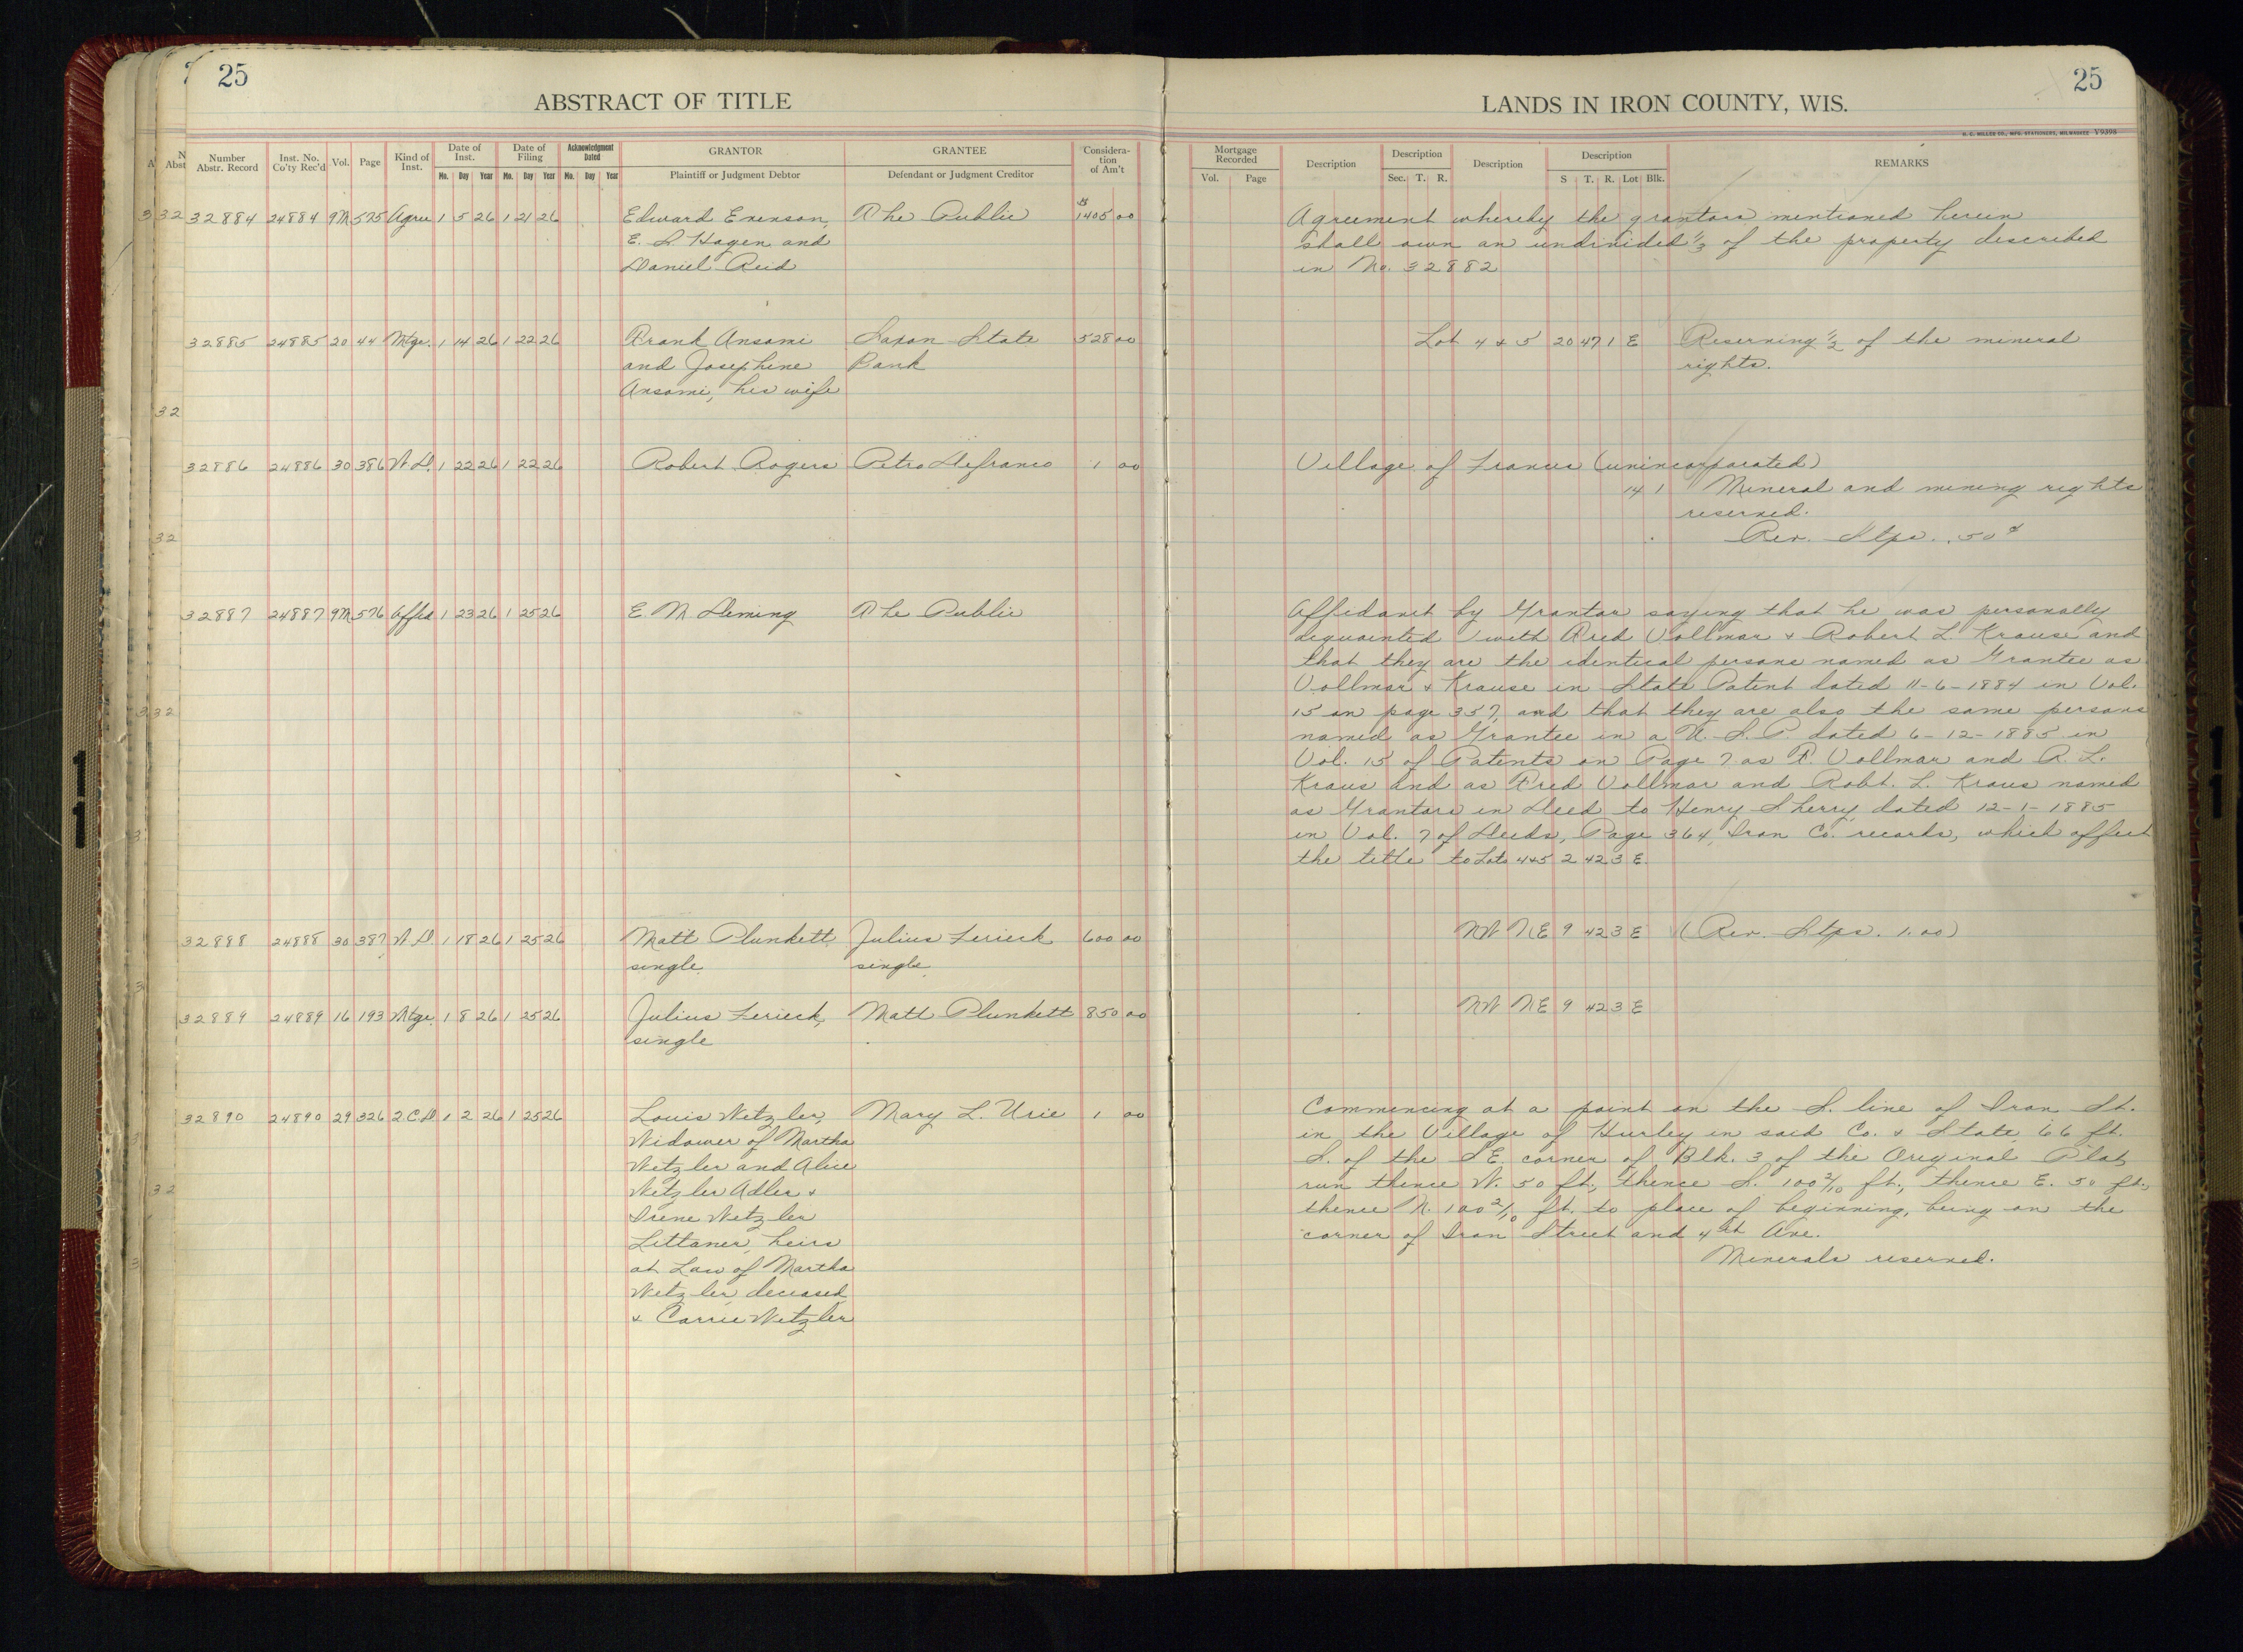 25
ABSTRACT OF TITLE
Number Abstr. Record Inst. No. Co'ty Rec'd Vol. Page Kind of Inst. Date of Inst. Mo. Day Year Date of Filing Mo. Day Year Acknowledgment Dated Mo. Day Year GRANTOR Plaintiff or Judgment Debtor GRANTEE Defendant or Judgment Creditor Considera-tion of Am't
32884 24884 9M 575 Agree 1 5 26 1 21 26 Edward Evenson, The Public $1405 00
E. S. Hagen and
Daniel Reid
32885 24885 20 44 Mtge. 1 14 26 1 22 26 Frank Ansami Saxon State 528 00
and Josephine Bank
Ansami, his wife
32886 24886 30 386 W D. 1 22 26 1 22 26 Robert Rogers Petro Defranco 1 00
32887 24887 9M 576 Affid 1 23 26 1 25 26 E M Deming The Public
32888 24888 30 387 W D. 1 18 26 1 25 26 Matt Plunkett, Julius Lerieck 600 00
single. single
32889 24889 16 193 Mtge. 1 8 26 1 25 26 Julius Lerieck, Matt Plunkett 850 00
single
32890 24890 29 326 2 C D. 1 2 26 1 25 26 Louis Wetzler, Mary L. Urie 1 00
Widower of Martha
Wetzler and Alice
Wetzler Adler +
Irene Wetzler
Littaner, heirs
at Law of Martha
Wetzler, deceased
+ Carrie Wetzler
25
LANDS IN IRON COUNTY, WIS.
H. C. MILLER CO., MFG. STATIONERS, MILWAUKEE V9398
Mortgage Recorded Vol. Page Description Description Sec. T. R. Description Description S T. R. Lot Blk. REMARKS
Agreement whereby the grantors mentioned herein
shall own an undivided 1/3 of the property described
in No. 32882
Lot 4 + 5 20 47 1 E Reserving 1/2 of the mineral
rights.
Village of Francis (unincorporated)
14 1 Mineral and mining rights
reserved.
Rev. Stps. .50¢
Affidavit by Grantor saying that he was personally
acquainted with Fred Vollmar + Robert L. Krause and
that they are the identical persons named as Grantee as
Vollmar + Krause in State Patent dated 11-6-1884 in Vol.
15 on page 357, and that they are also the same persons
named as Grantee in a U. S. P. dated 6-12-1885 in
Vol. 15 of Patents on Page 7 as F. Vollmar and R. L.
Kraus and as Fred Vollmar and Robt. L. Kraus named
as Grantors in Deed to Henry Sherry, dated 12-1-1885
in Vol. 7 of Deeds, Page 364, Iron Co. records, which affect
the title to Lots 4+5 2 42 3 E.
NW NE 9 42 3 E (Rev. Stps. 1.00)
NW NE 9 42 3 E
Commencing at a point on the S. line of Iron St.
in the Village of Hurley in said Co. + State 66 ft.
S. of the SE. corner of Blk. 3 of the Original Plat,
run thence W. 50 ft., thence S. 100 2/10 ft., thence E. 50 ft.,
thence N. 100 2/10 ft. to place of beginning, being on the
corner of Iron Street and 4th Ave.
Minerals reserved.